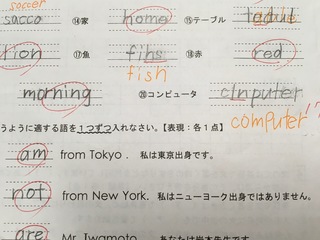 soccer
sacco ⑭家 home ⑮テーブル
tion ⑰魚 fihs ⑱赤 red
fish
morning ⑳コンピュータ cinputer
computer
うように適する語を1つずつ入れなさい。【表現:各1点】
am from Tokyo . 私は東京出身です。
not from New York. 私はニューヨーク出身ではありません。
are Mr. Iwamoto